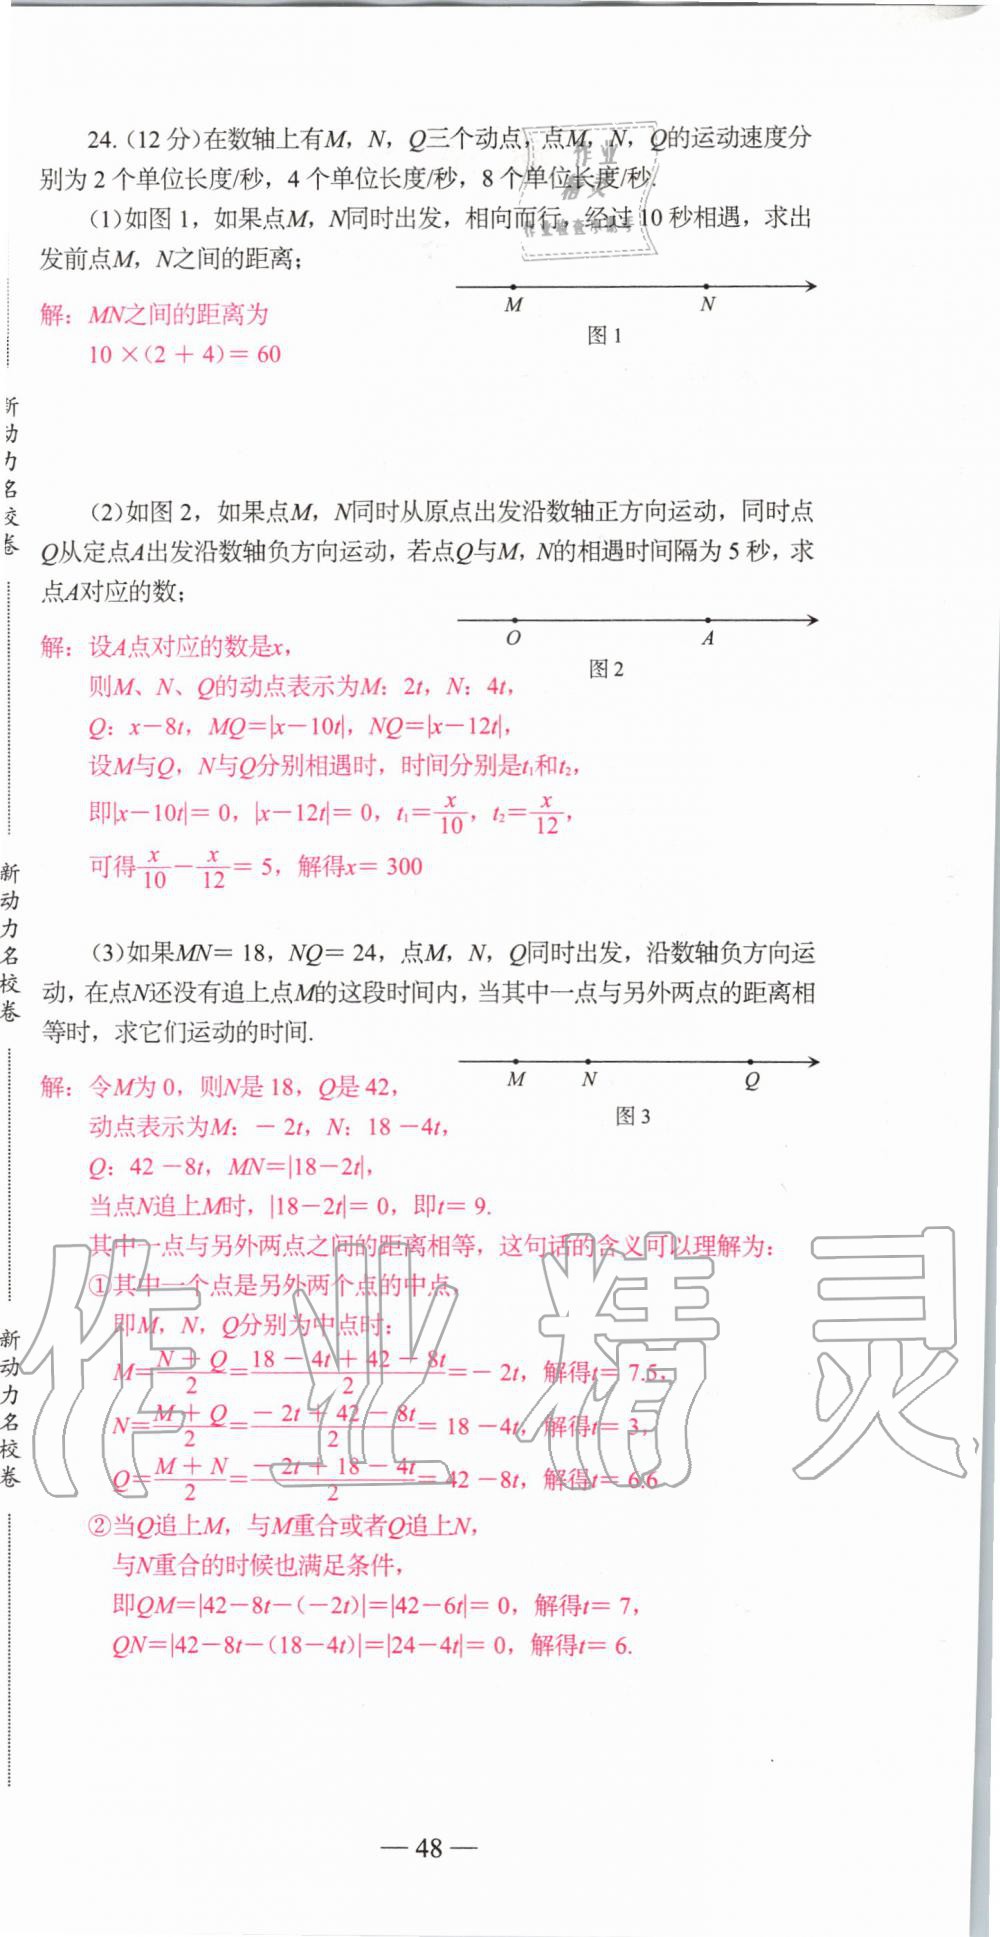 24.(12分)在数轴上有M，N，Q三个动点，点M，N，Q的运动速度分
别为2个单位长度/秒，4个单位长度/秒，8个单位长度/秒.
(1)如图1，如果点M，N同时出发，相向而行，经过10秒相遇，求出
发前点M，N之间的距离；
M N
图1
解：MN之间的距离为
10×(2+4)=60
(2)如图2，如果点M，N同时从原点出发沿数轴正方向运动，同时点
Q从定点A出发沿数轴负方向运动，若点Q与M，N的相遇时间隔为5秒，求
点A对应的数；
O A
图2
解：设A点对应的数是x，
则M、N、Q的动点表示为M：2t，N：4t，
Q：x-8t，MQ=|x-10t|，NQ=|x-12t|，
设M与Q，N与Q分别相遇时，时间分别是t₁和t₂，
即|x-10t|=0，|x-12t|=0，t₁=x/10，t₂=x/12，
可得x/10-x/12=5，解得x=300
(3)如果MN=18，NQ=24，点M，N，Q同时出发，沿数轴负方向运
动，在点N还没有追上点M的这段时间内，当其中一点与另外两点的距离相
等时，求它们运动的时间.
M N Q
图3
解：令M为0，则N是18，Q是42，
动点表示为M：-2t，N：18-4t，
Q：42-8t，MN=|18-2t|，
当点N追上M时，|18-2t|=0，即t=9.
其中一点与另外两点之间的距离相等，这句话的含义可以理解为：
①其中一个点是另外两个点的中点，
即M，N，Q分别为中点时：
M=(N+Q)/2=(18-4t+42-8t)/2=-2t，解得t=7.5，
N=(M+Q)/2=(-2t+42-8t)/2=18-4t，解得t=3，
Q=(M+N)/2=(-2t+18-4t)/2=42-8t，解得t=6.6
②当Q追上M，与M重合或者Q追上N，
与N重合的时候也满足条件，
即QM=|42-8t-(-2t)|=|42-6t|=0，解得t=7，
QN=|42-8t-(18-4t)|=|24-4t|=0，解得t=6.
— 48 —
新动力名校卷
新动力名校卷
新动力名校卷
作业精灵
作业
精灵